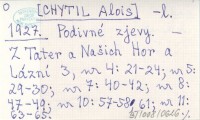 [CHYTIL Alois] -l.
1927. Podivné zjevy. -
Z Tater a Našich Hor a
Lázní 3, nr 4: 21-24; nr 5:
29-30; nr 7: 40-42; nr 8:
47-49; nr 10: 57-58, 61; nr 11:
63-65.